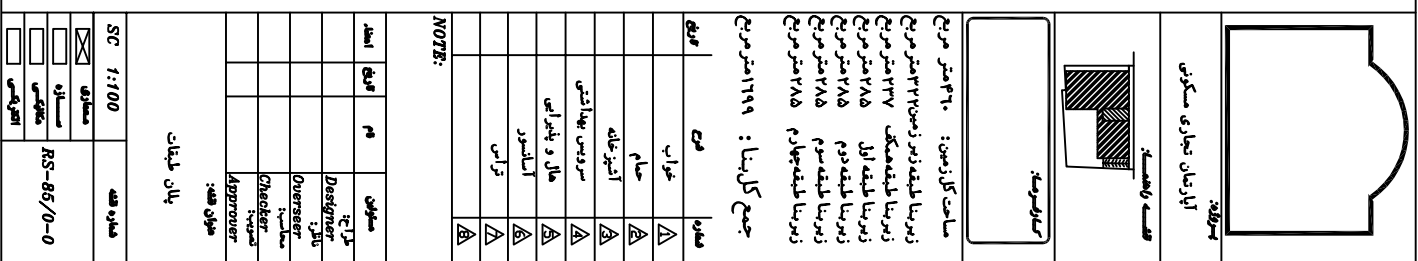 پروژه:
آپارتمان تجاری مسکونی
نقشه راهنما:
کارفرما:
مساحت کل زمین: ۴۶۰ متر مربع
زیر بنا طبقه زیر زمین ۳۲۲ متر مربع
زیر بنا طبقه همکف ۲۳۷ متر مربع
زیر بنا طبقه اول ۲۸۵ متر مربع
زیر بنا طبقه دوم ۲۸۵ متر مربع
زیر بنا طبقه سوم ۲۸۵ متر مربع
زیر بنا طبقه چهارم ۲۸۵ متر مربع
جمع کل بنا: ۱۶۹۹ متر مربع
شماره شرح تاریخ
1 خواب
2 حمام
3 آشپزخانه
4 سرویس بهداشتی
5 هال و پذیرایی
6 آسانسور
7 تراس
8
NOTE:
مسئولین نام تاریخ امضاء
طراح:
Designer
ناظر:
Overseer
محاسب:
Checker
تصویب:
Approver
عنوان نقشه:
پلان طبقات
شماره نقشه
SC 1:100
RS-85/0-0
معماری
سازه
مکانیکی
الکتریکی